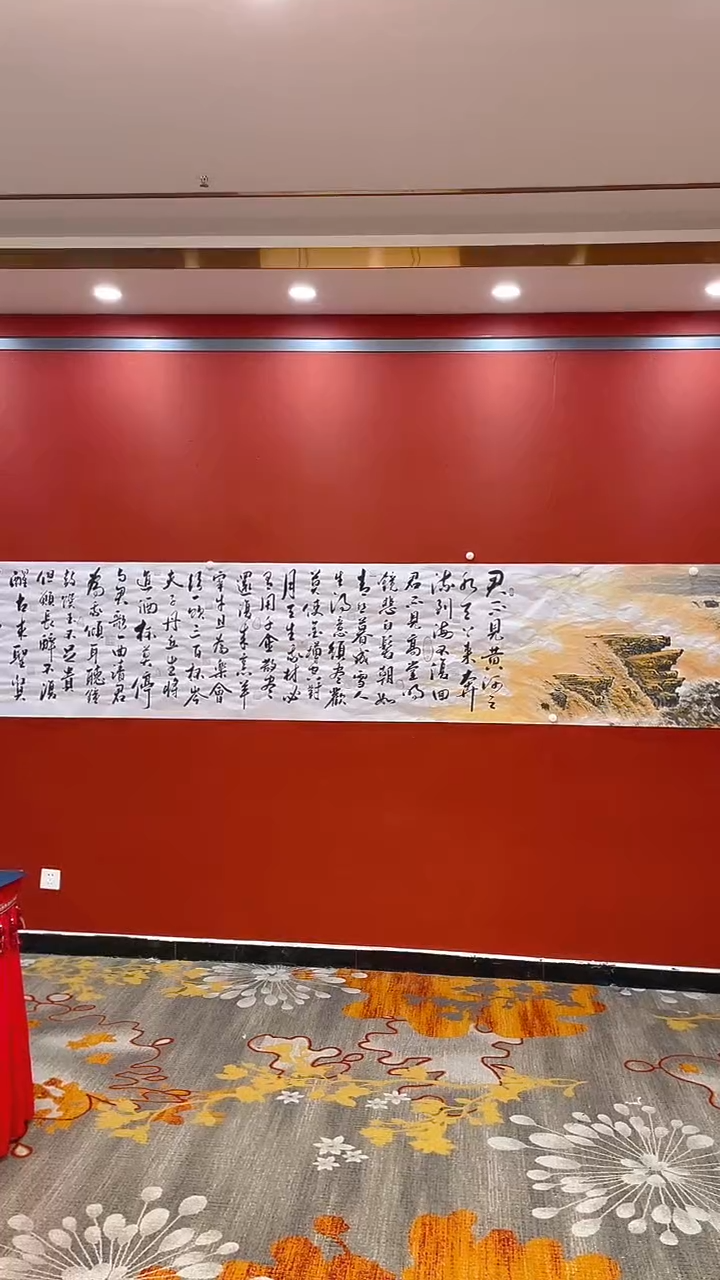 君不見黄河之
水天上来奔
流到海不復回
君不見高堂明
鏡悲白髮朝如
青丝暮成雪人
生得意須盡歡
莫使金樽空對
月天生我材必
有用千金散盡
還復来烹羊
宰牛且為樂會
須一飲三百杯岑
夫子丹丘生將
進酒杯莫停
与君歌一曲请君
為我傾耳聽鐘
鼓饌玉不足貴
但願長醉不復
醒古来聖賢